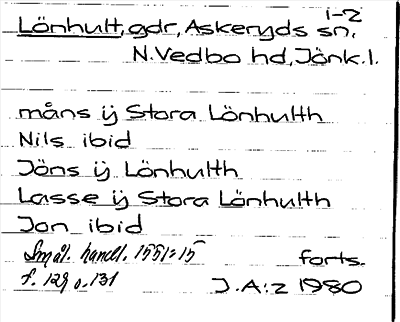 1-2
Lönhult, gdr, Askeryds sn.
N.Vedbo hd, Jönk.l.
måns ÿ Stora Lönhulth
Nils ibid
Jöns ÿ Lönhulth
Lasse ÿ Stora Lönhulth
Jon ibid
Smål. handl. 1551:15
forts.
f. 129 o. 131
J.A:z 1980